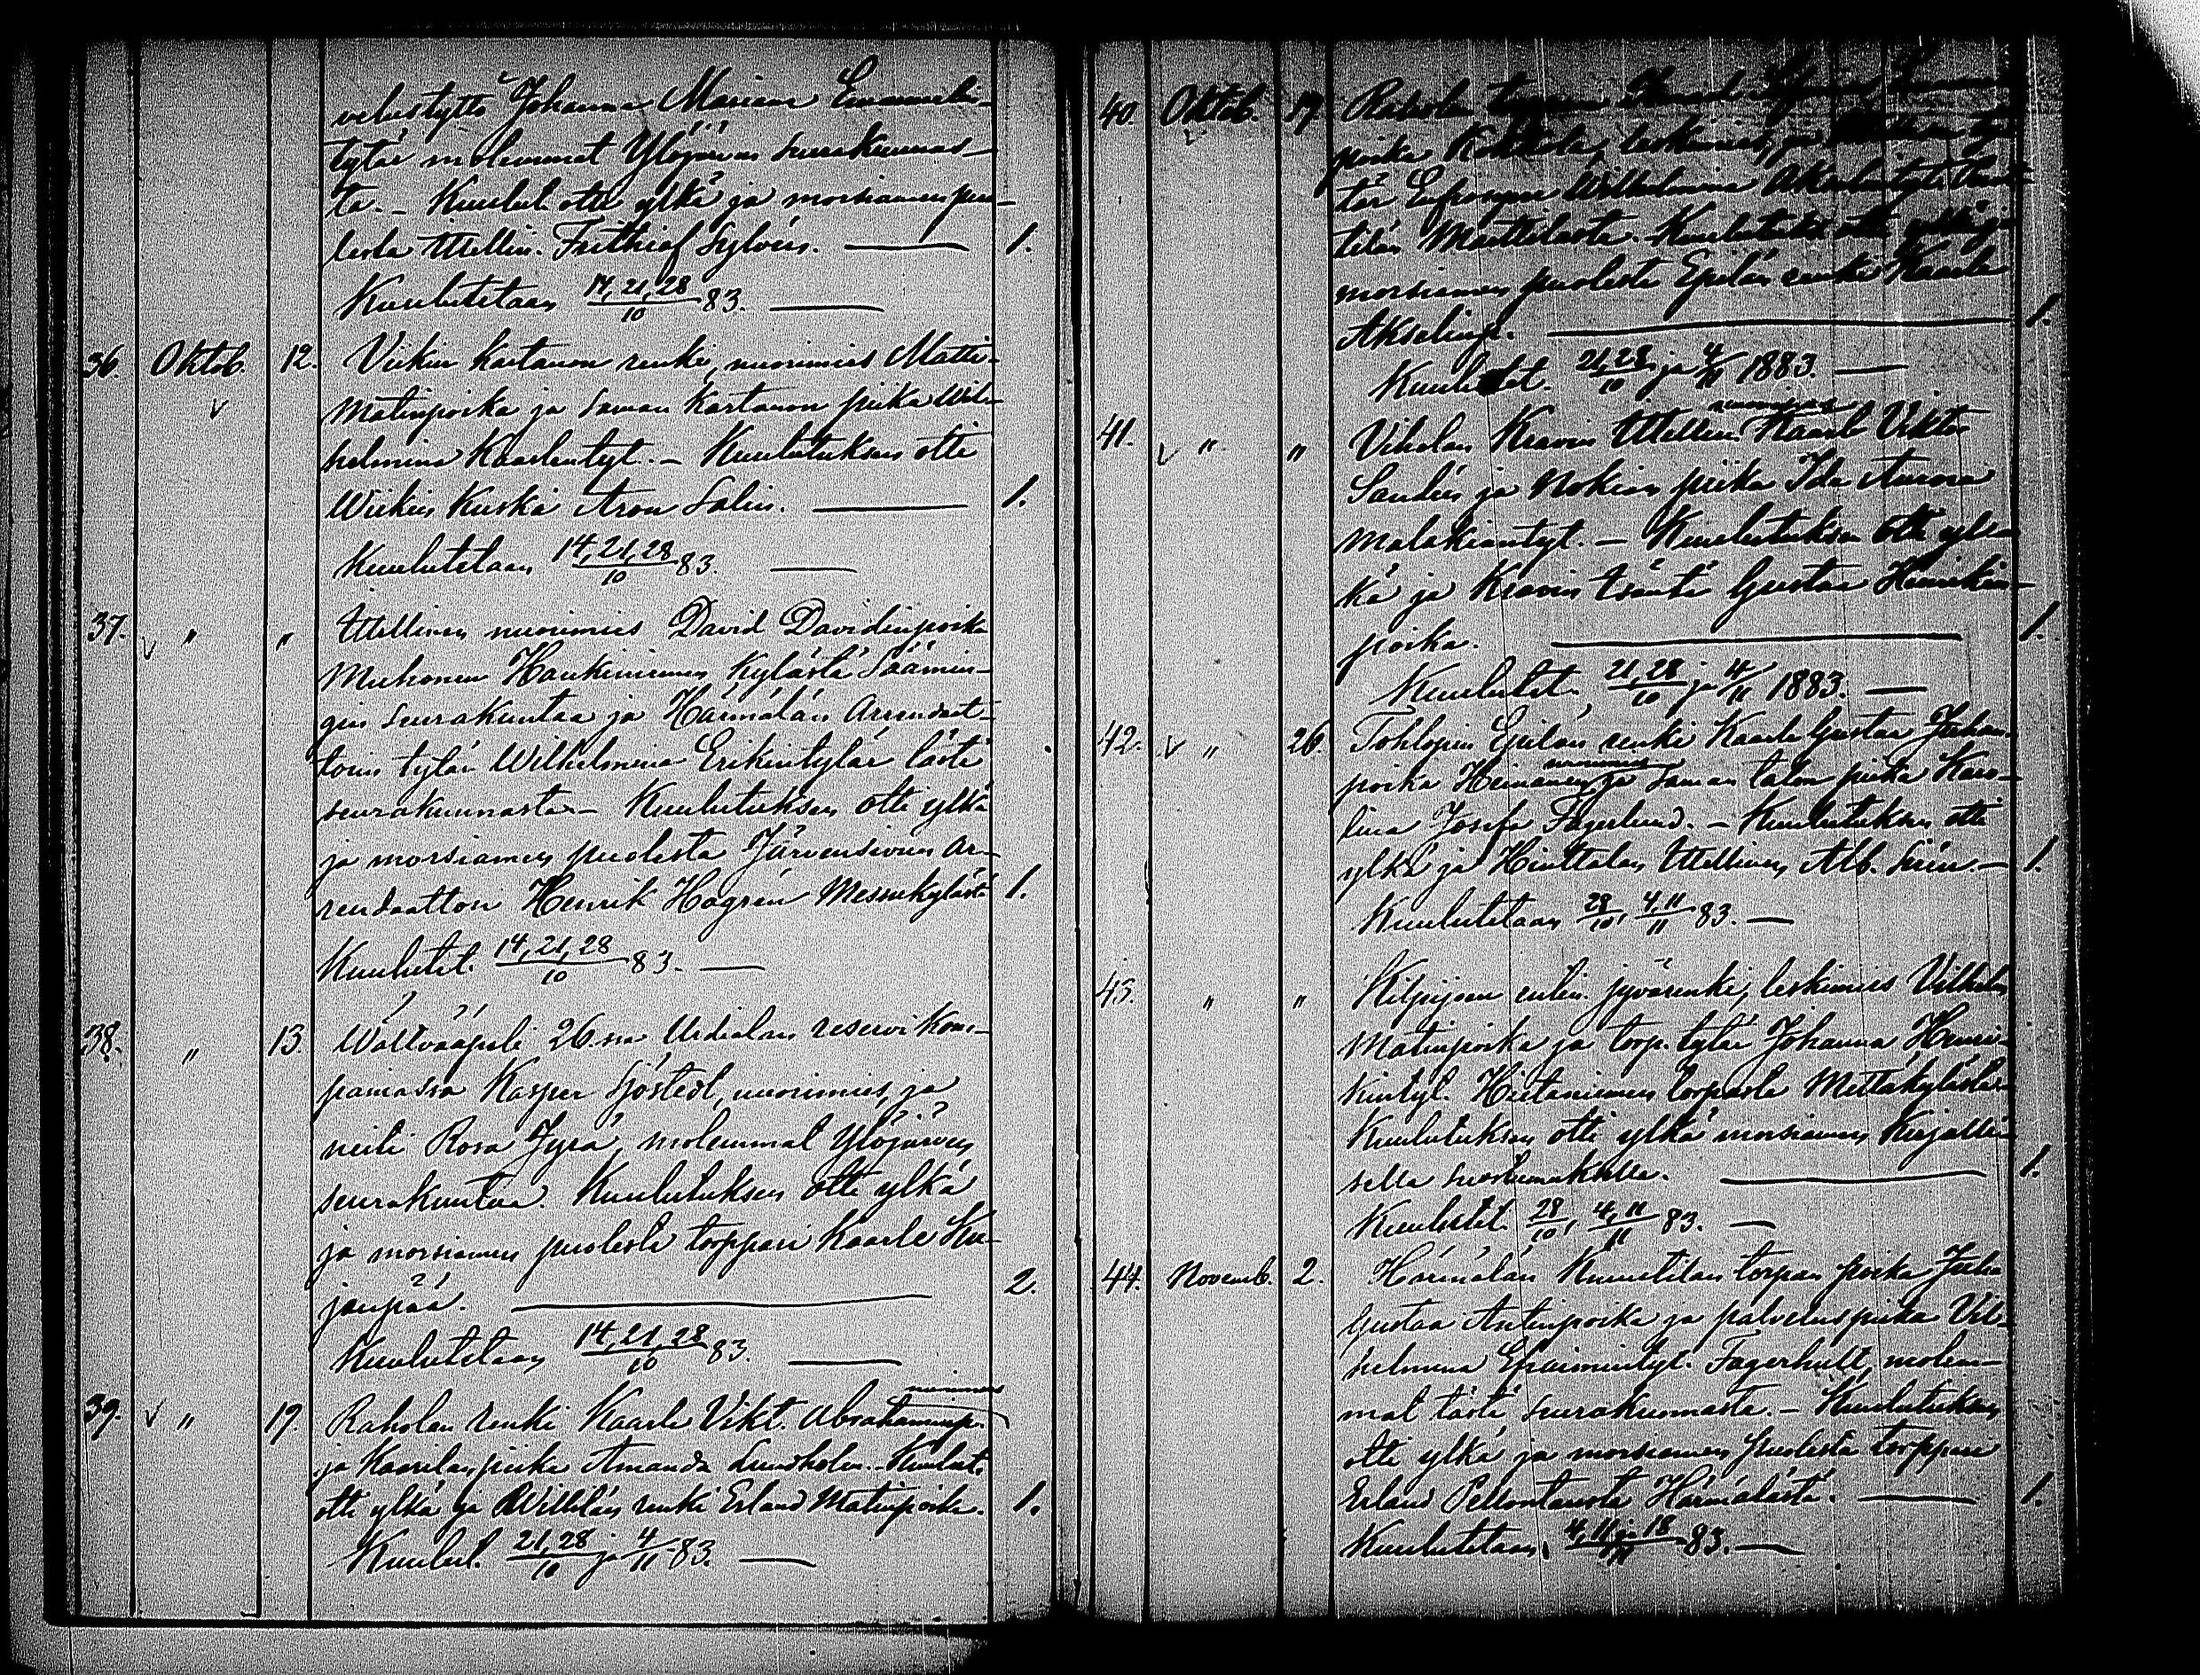 velustyttö Johanna Maria Emanuelin-
tytär molemmat Ylöjärven seurakunnas-
ta. – Kuulut. otti ylkä ja morsiamen puo-
lesta Itsellin. Frithiof Sylvén. 1.
Kuulutetaan 14, 21, 28/10 83.
36. Oktob. 12. Viikin kartanon renki, nuorimies Matti
Matinpoika ja saman kartanon piika Wil-
helmina Kaarlentyt. – Kuulutuksen otti
Wiikin kuski Aron Salin. 1.
Kuulutetaan 14, 21, 28/10 83.
37. " " Itsellinen nuorimies David Davidinpoika
Muhonen Haukiniemen kylästä Säämin-
gin seurakuntaa ja Härmälän Arrendaat-
torin tytär Wilhelmina Erikintytär tästä
seurakunnasta – Kuulutuksen otti ylkä
ja morsiamen puolesta Järvensivun ar-
rendaattori Henrik Hagrén Messukylästä 1.
Kuulutet. 14, 21, 28/10 83.
38. " 13. Wältvääpeli 26.ssa Urdialan reservikom-
paniassa Kasper Sjöstedt, nuorimies, ja
neiti Rosa Jyrä, molemmat Ylöjärven
seurakuntaa. Kuulutuksen otti ylkä
ja morsiamen puolesta torppari Kaarle Ku-
janpää. 2.
Kuulutetaan 14, 21, 28/10 83.
39. " 19. Raholan renki Kaarle Vikt. Abrahaminp. nuorimies
ja Kaarilan piika Amanda Lindholm. – Kuulut.
otti ylkä ja Willilän renki Erland Matinpoika. 1.
Kuulut. 21, 28/10 ja 4/11 83.
40. Oktob. 19. Raholan
poika leskimies, ja
tär Eufrosyne Wilhelmina
tilän Marttilasta. Kuulutuks. otti ylkä ja
morsiamen puolesta Epilän renki Kaarle
Akselinp. 1.
Kuulutet. 21, 28/10 ja 4/11 1883.
41. " " Viholan Kravin Itsellin. nuorimies Kaarle Viktor
Sandén ja Nokian piika Ida Aurora
Malakiantyt. – Kuulutuksen otti yl-
kä ja Kravin isäntä Gustaa Henrikin-
poika. 1.
Kuulutet. 21, 28/10 ja 4/11 1883.
42. " 26. Tohlopin Epilän renki Kaarle Gustaa Juhan-
poika Heinänen nuorimies ja saman talon piika Karo-
lina Josefa Fagerlund. – Kuulutuksen otti
ylkä ja Hinttalan Itsellinen Alb. Sirén. – 1.
Kuulutetaan 28/10, 4, 11/11 83.
43. " " Kilpijoen entin. jyvärenki, leskimies Vilhelm
Matinpoika ja torp. tytär Johanna Henri-
kintyt. Hietaniemen torpasta Mettäkylästä.
Kuulutuksen otti ylkä morsiamen kirjalli-
sella suostumuksella. 1.
Kuulutet. 28/10, 4, 11/11 83.
44. Novemb. 2. Härmälän torpan poika Juha
Gustaa Antinpoika ja palveluspiika Vil-
helmina Efraimintyt. Fagerhult, molem-
mat tästä seurakunnasta. – Kuulutuksen
otti ylkä ja morsiamen puolesta torppari
Erland Pellontausta Härmälästä. 1.
Kuulutetaan 4, 11 ja 18/11 83.